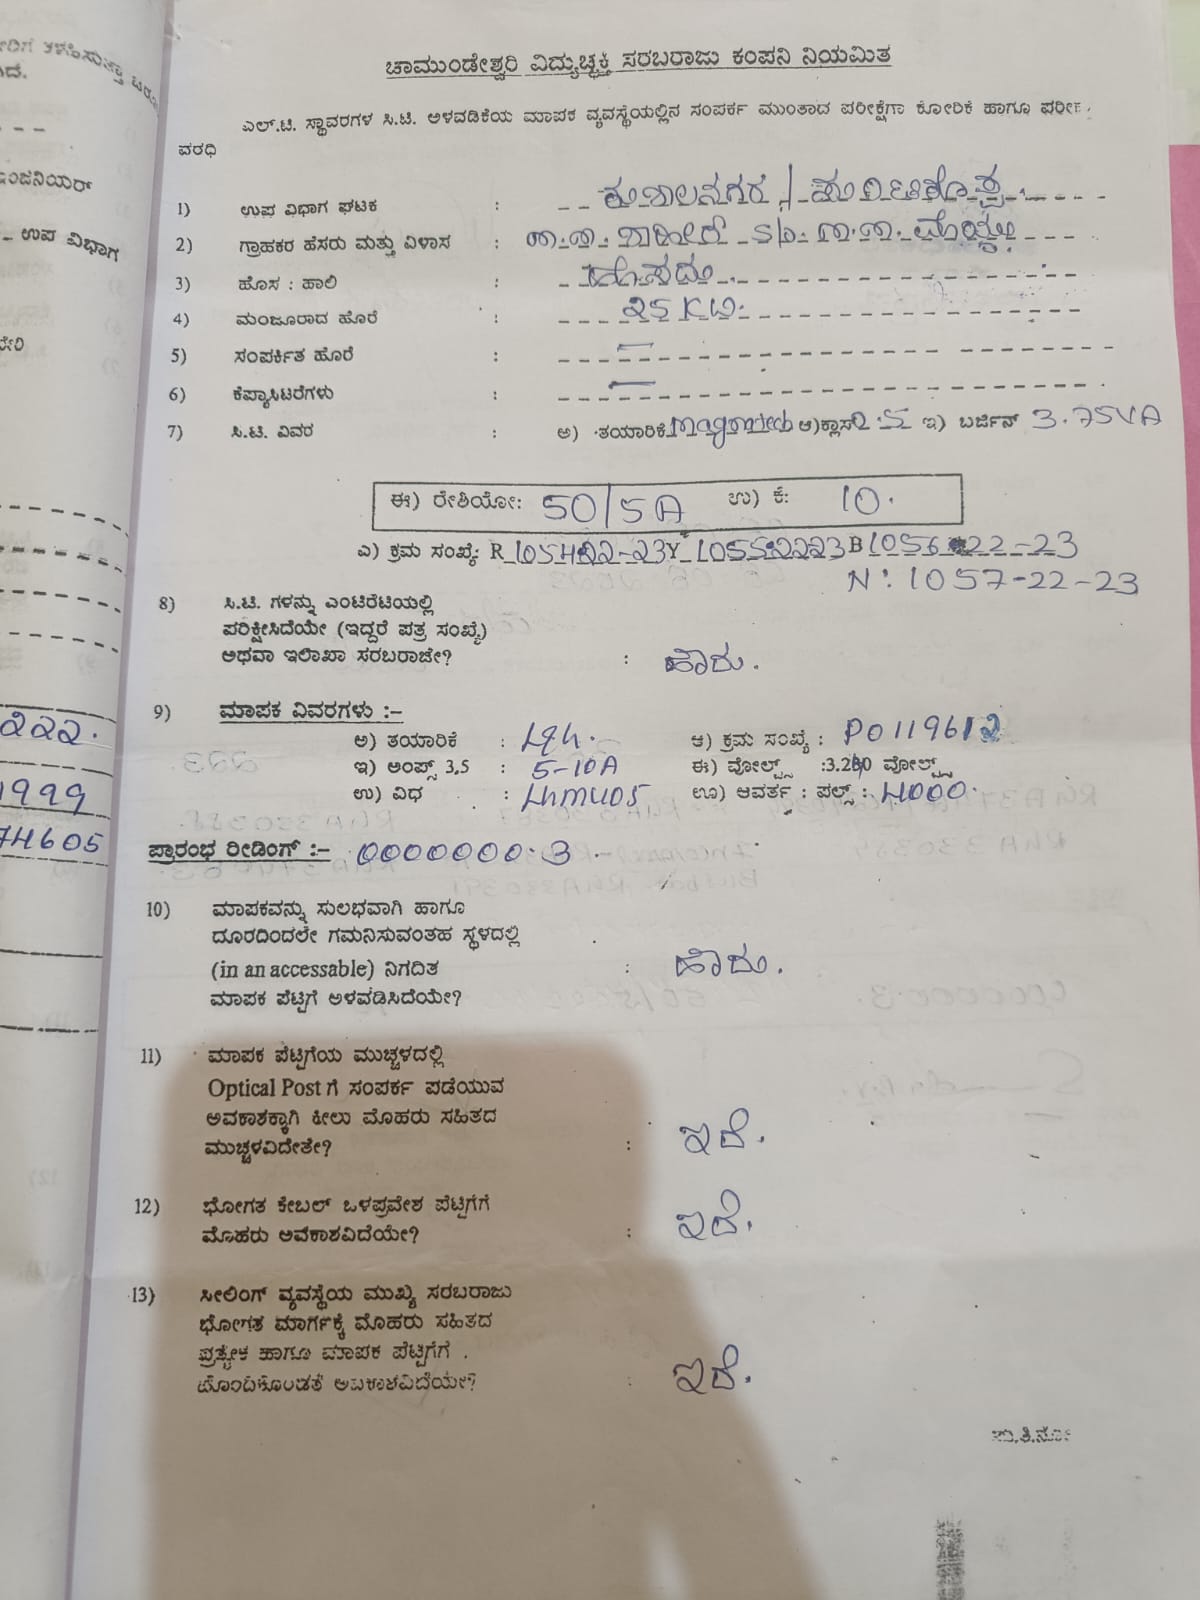 ಚಾಮುಂಡೇಶ್ವರಿ ವಿದ್ಯುಚ್ಛಕ್ತಿ ಸರಬರಾಜು ಕಂಪನಿ ನಿಯಮಿತ
ಎಲ್.ಟಿ. ಸ್ಥಾವರಗಳ ಸಿ.ಟಿ. ಅಳವಡಿಕೆಯ ಮಾಪಕ ವ್ಯವಸ್ಥೆಯಲ್ಲಿನ ಸಂಪರ್ಕ ಮುಂತಾದ ಪರೀಕ್ಷೆಗಾ ಕೋರಿಕೆ ಹಾಗೂ
ವರಧಿ
ಇಂಜನಿಯರ್
ಉಪ ವಿಭಾಗ
1) ಉಪ ವಿಭಾಗ ಘಟಕ : ಕುಶಾಲನಗರ /
2) ಗ್ರಾಹಕರ ಹೆಸರು ಮತ್ತು ವಿಳಾಸ : S/o.
3) ಹೊಸ : ಹಾಲಿ : ಹೊಸದು.
4) ಮಂಜೂರಾದ ಹೊರೆ : 25 KW.
5) ಸಂಪರ್ಕಿತ ಹೊರೆ : —
6) ಕೆಪ್ಯಾಸಿಟರೆಗಳು : —
7) ಸಿ.ಟಿ. ವಿವರ : ಅ) ತಯಾರಿಕೆ ಆ)ಕ್ಲಾಸ್ ಇ) ಬರ್ಜಿನ್ 3.75VA
ಈ) ರೇಶಿಯೋ: 50/5A ಉ) ಕೆ: 10.
ಎ) ಕ್ರಮ ಸಂಖ್ಯೆ: R 1054-22-23 Y 1055-2223 B 1056-22-23
N: 1057-22-23
8) ಸಿ.ಟಿ. ಗಳನ್ನು ಎಂಟಿರೆಟಿಯಲ್ಲಿ
ಪರಿಕ್ಷೀಸಿದೆಯೇ (ಇದ್ದರೆ ಪತ್ರ ಸಂಖ್ಯೆ)
ಅಥವಾ ಇಲಾಖಾ ಸರಬರಾಜೇ? : ಹೌದು.
222.
1999
74605
9) ಮಾಪಕ ವಿವರಗಳು :-
ಅ) ತಯಾರಿಕೆ : ಆ) ಕ್ರಮ ಸಂಖ್ಯೆ : P0119612
ಇ) ಅಂಪ್ಸ್ 3,5 : 5-10A ಈ) ವೋಲ್ಟ್ಸ್ ವೋಲ್ಟ್ಸ್
ಉ) ವಿಧ : ಊ) ಆವರ್ತ : ಪಲ್ಸ್ : 4000.
ಪ್ರಾರಂಭ ರೀಡಿಂಗ್ :- 0000000.3
10) ಮಾಪಕವನ್ನು ಸುಲಭವಾಗಿ ಹಾಗೂ
ದೂರದಿಂದಲೇ ಗಮನಿಸುವಂತಹ ಸ್ಥಳದಲ್ಲಿ
(in an accessable) ನಿಗದಿತ : ಹೌದು.
ಮಾಪಕ ಪೆಟ್ಟಿಗೆ ಅಳವಡಿಸಿದೆಯೇ?
11) ಮಾಪಕ ಪೆಟ್ಟಿಗೆಯ ಮುಚ್ಚಳದಲ್ಲಿ
Optical Post ಗೆ ಸಂಪರ್ಕ ಪಡೆಯುವ
ಅವಕಾಶಕ್ಕಾಗಿ ಕೀಲು ಮೊಹರು ಸಹಿತದ
ಮುಚ್ಚಳವಿದೇತೇ? : ಇದೆ.
12) ಭೋಗತ ಕೇಬಲ್ ಒಳಪ್ರವೇಶ ಪೆಟ್ಟಿಗೆಗೆ
ಮೊಹರು ಅವಕಾಶವಿದೆಯೇ? : ಇದೆ.
13) ಸೀಲಿಂಗ್ ವ್ಯವಸ್ಥೆಯ ಮುಖ್ಯ ಸರಬರಾಜು
ಭೋಗತ ಮಾರ್ಗಕ್ಕೆ ಮೊಹರು ಸಹಿತದ
ಪ್ರತ್ಯೇಕ ಹಾಗೂ ಮಾಪಕ ಪೆಟ್ಟಿಗೆಗೆ .
ಹೊಂದಿಕೊಂಡತೆ ಅವಕಾಶವಿದೆಯೇ? : ಇದೆ.